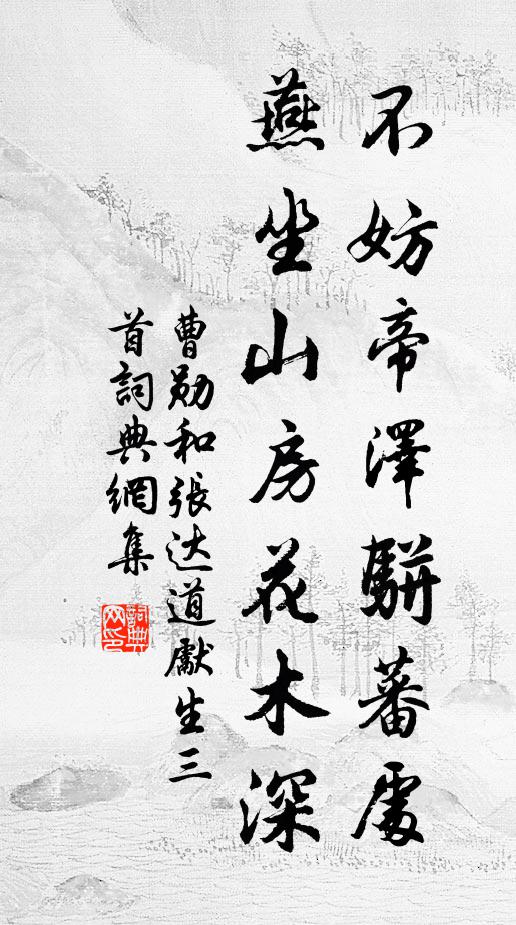 不妨帝澤駢蕃處
燕坐山房花木深
曹勛和張达道獻生三
首詞典網集
詞典网印